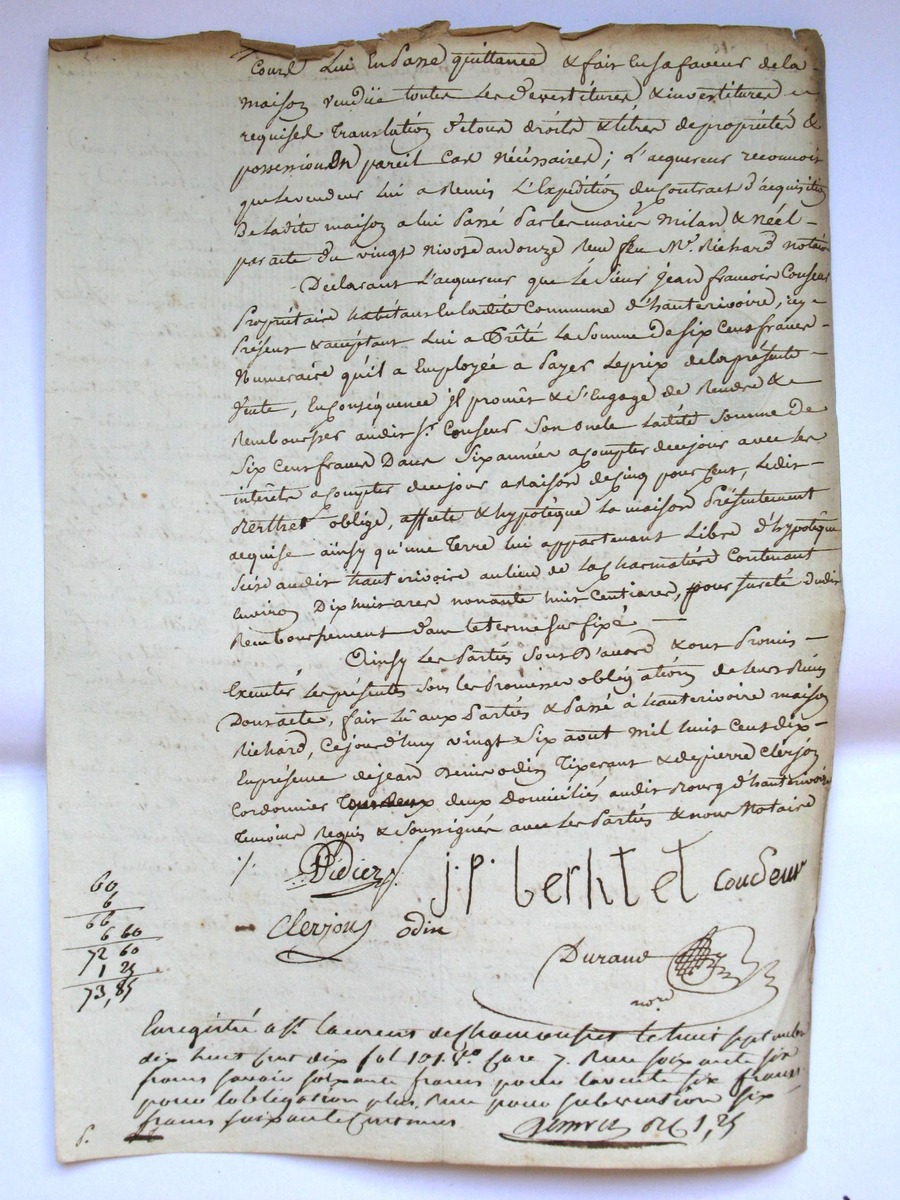 Lui En Passe quittance & fait En sa faveur de la
maison vendüe toutes Les Devestitures & investitures
requises Translation De tous droits & titres de propriétés &
possession En pareil Cas Nécéssaires; L'acquereur reconnoit
que Le vendeur Lui a Remis L'Expédition du Contract D'acquisition
De Ladite maison a lui Passé Par les mariés Milan & Néel
par acte du vingt Nivose an onze Reçu feu Me. Richard notaire
Déclarant L'acquereur que Le Sieur jean francois Couseur
Propriétaire habitant En Ladite Commune d'hauterivoire, icy
Présent & acceptant Lui a Prêté La Somme De Six Cent francs
Numeraire qu'il a Employée a Payer Le prix de la présente
Vente, En Conséquence il promet & S'Engage de Rendre &
Rembourser audit Sr. Couseur Son oncle Ladite Somme De
Six Cent francs Dans Six années a compter de ce jour avec Les
intérêts a compter de ce jour a Raison de Cinq pour Cent, Ledit
Berthet oblige, affecte & hypotèque La maison Présentement
acquise ainsy qu'une Terre lui appartenant Libre d'hypotèque
Sise audit hauterivoire au lieu de La Charmatière Contenant
Environ Dix huit ares nonante huit Centiares, pour Sureté dudit
Remboursement Dans Le terme Sur fixé
Ainsy Les Parties Sont D'accord & ont Promis
Executer Les présentes Sous Les Promesses obligations de Leurs Biens
Dont acte, fait Lû aux Parties & Passé à hauterivoire maison
Richard, Cejourd'huy vingt Six aout mil huit Cent dix
En présence de jean Denis odin Tixerant & de pierre Clerjon
Cordonnier deux Domiciliés audit Bourg d'hauterivoire
Temoins Requis & Soussignés avec Les Parties & nous Notaire
Didier j.p. berhtet couseur
Clerjon odin
Durand
nore
60
6
66
6 60
72 60
1 25
73,85
Enregistré a St. Laurent de Chamousset le huit septembre
dix huit cent dix fol 101 Vo. Case 7. Reçu soixante six
francs savoir soixante francs pour la vente six francs
pour l'obligation plus Reçu pour subvention six
francs soixante Centimes 1,25